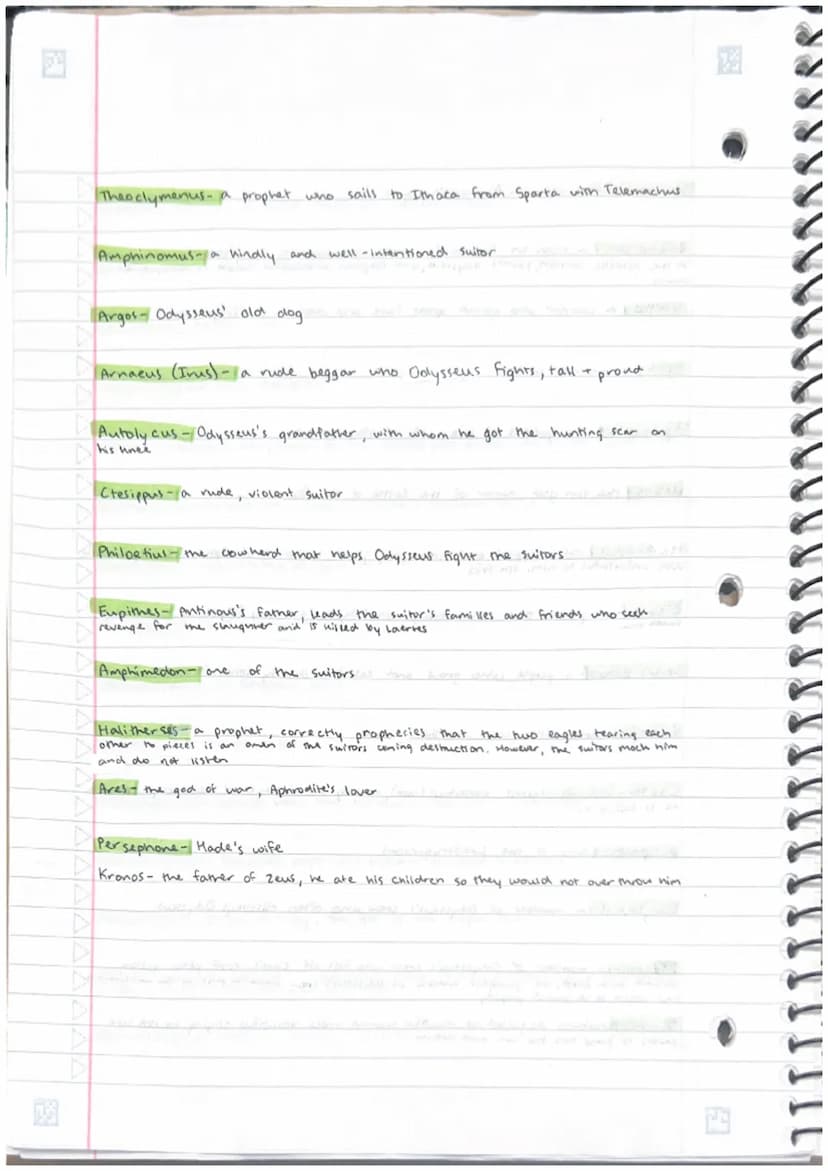 Theoclymenus- a prophet who sails to Ithaca from Sparta with Telemachus
Amphinomus- a kindly and well-intentioned suitor
Argos- Odysseus' old dog
Arnaeus (Irus)- a rude beggar who Odysseus fights, tall + proud
Autolycus- Odysseus's grandfather, with whom he got the hunting scar on
his knee
Ctesippus- a rude, violent suitor
Philoetius- the cowherd that helps Odysseus fight the suitors
Eupithes- Antinous's father, leads the suitor's families and friends who seek
revenge for the slaughter and is killed by Laertes
Amphimedon- one of the suitors
Halitherses- a prophet, correctly prophecies that the two eagles tearing each
other to pieces is an omen of the suitors coming destruction. However, the suitors mock him
and do not listen
Ares- the god of war, Aphrodite's lover
Persephone- Hade's wife
Kronos- the father of Zeus, he ate his children so they would not overthrow him